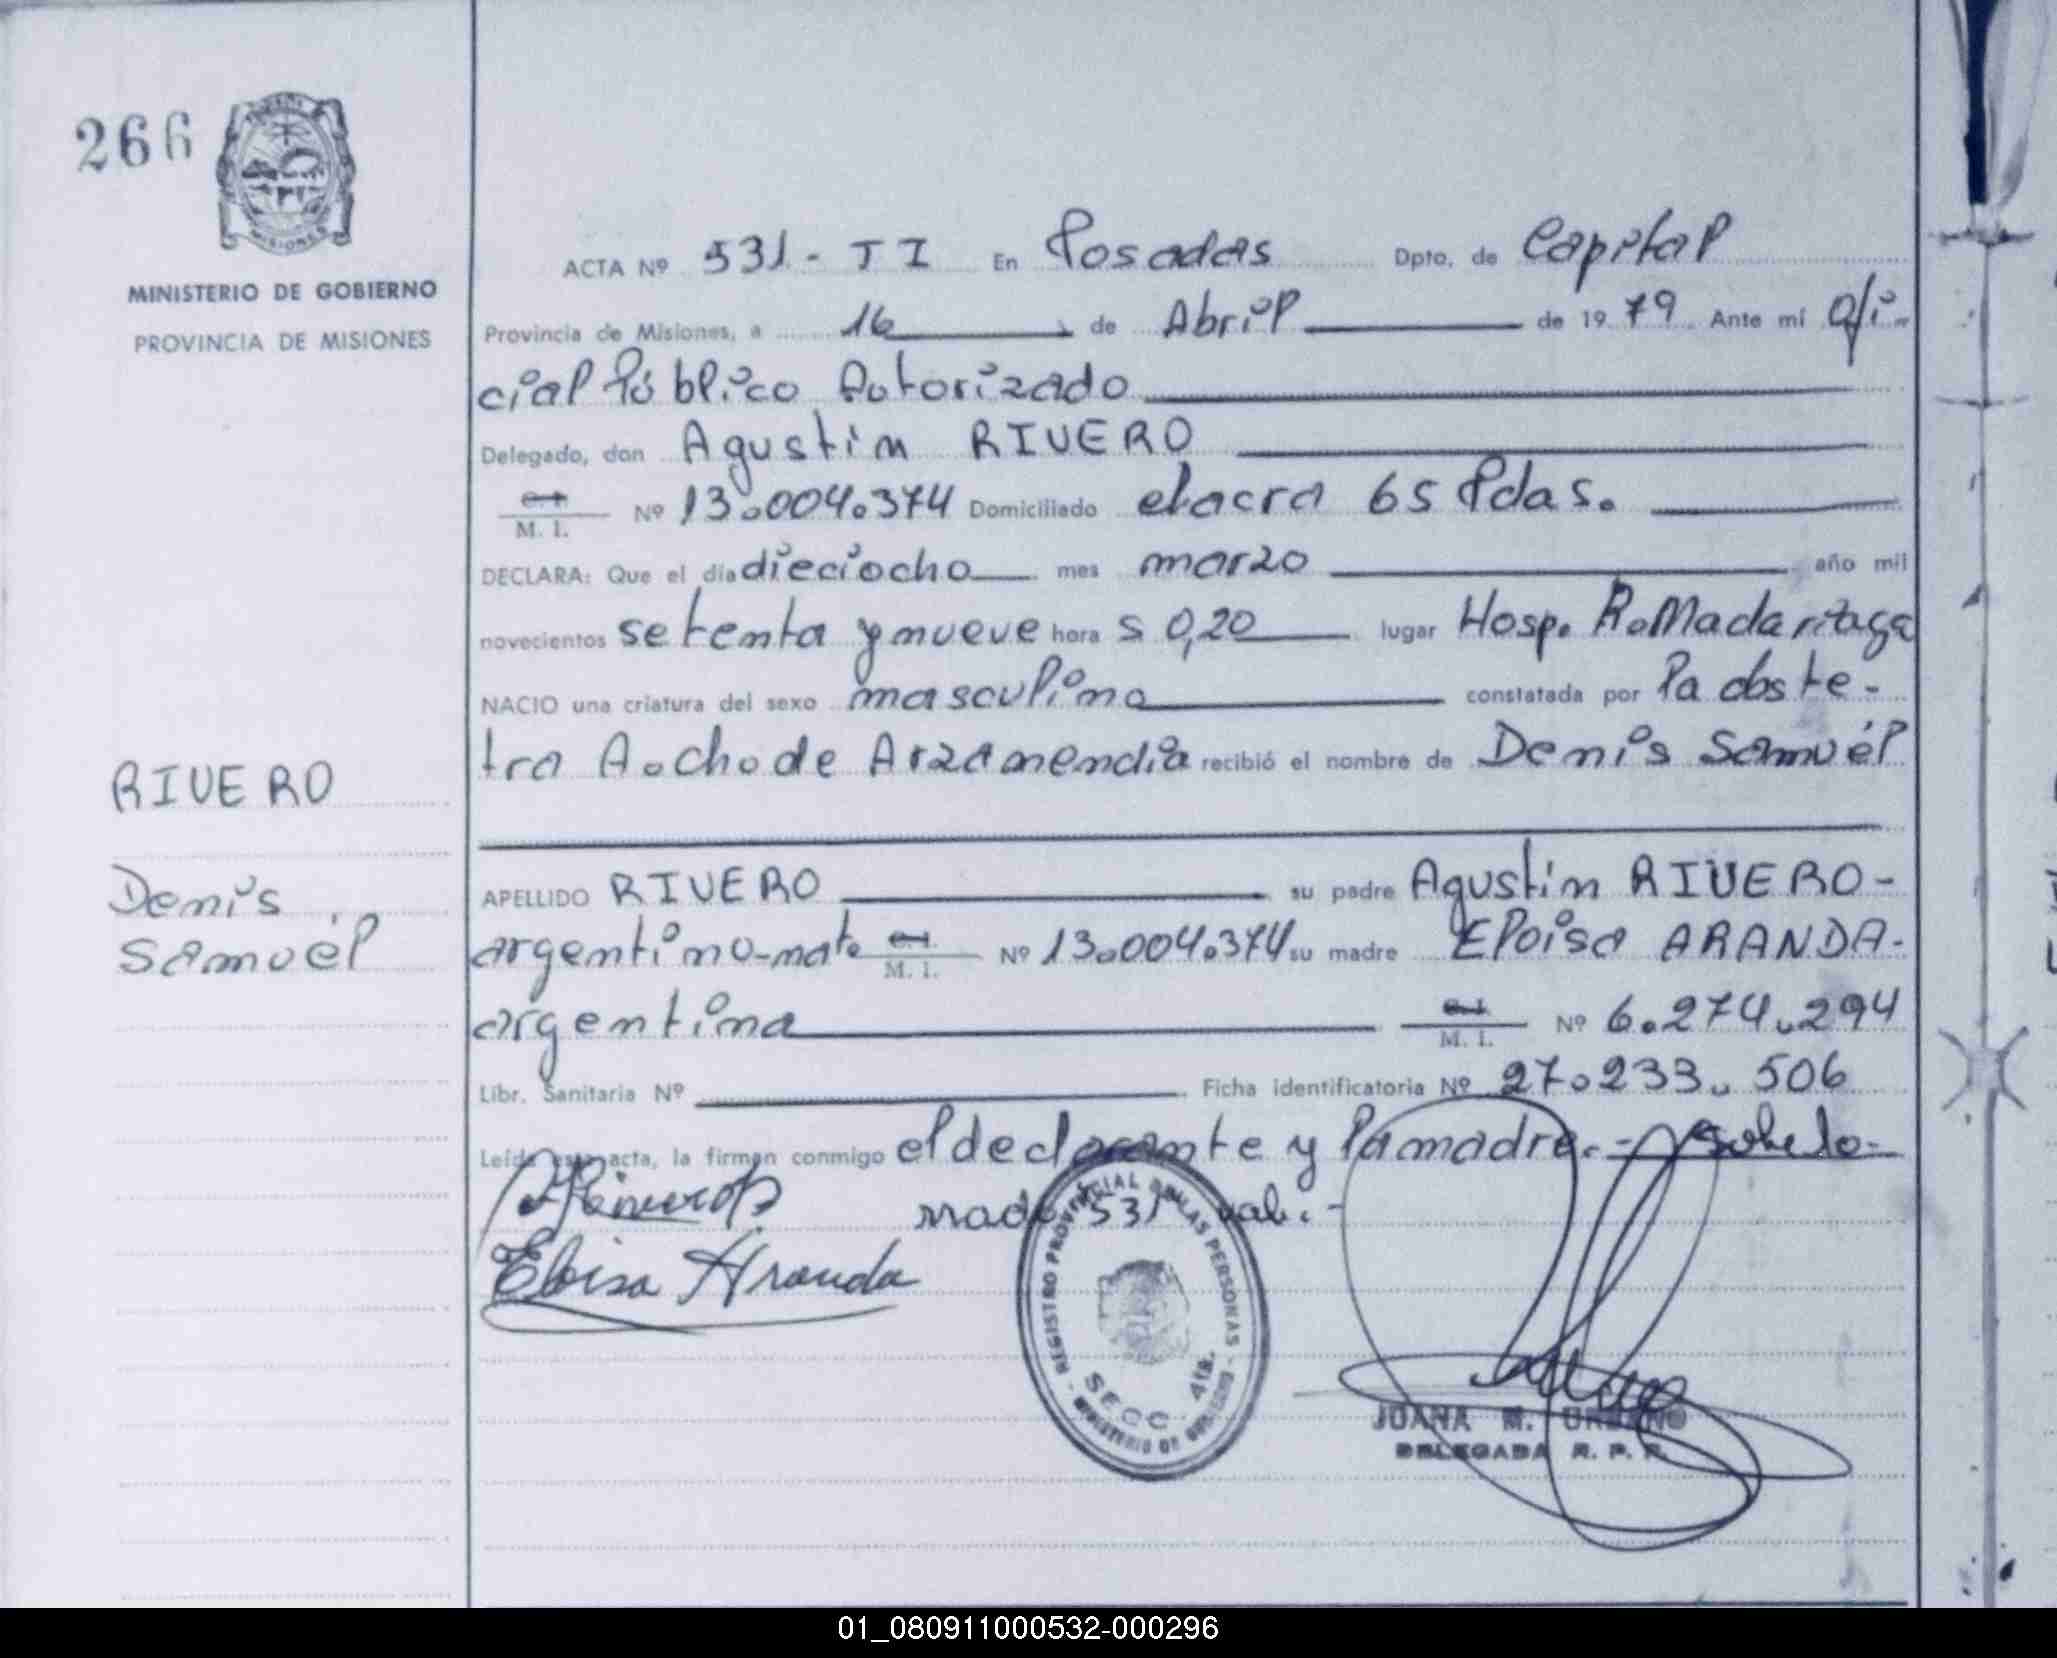 266
MISIONES
MINISTERIO DE GOBIERNO
PROVINCIA DE MISIONES
RIVERO
Denis
Samuél
ACTA Nº 531 - TI En Posadas Dpto. de Capital
Provincia de Misiones, a 16 de Abril de 1979 Ante mí Ofi-
cial Público Autorizado
Delegado, don Agustin RIVERO
M. I. Nº 13.004.374 Domiciliado chacra 65 Pdas.
DECLARA: Que el día dieciocho mes marzo año mil
novecientos setenta y nueve hora s 0,20 lugar Hosp. R. Madariaga
NACIO una criatura del sexo masculino constatada por la obste-
tra A. Cho de Arzamendia recibió el nombre de Denis Samuél
APELLIDO RIVERO su padre Agustin RIVERO-
argentino-nat. M. I. Nº 13.004.374 su madre Eloisa ARANDA-
argentina M. I. Nº 6.274.294
Libr. Sanitaria Nº Ficha identificatoria Nº 27.233.506
Leída esta acta, la firman conmigo el declarante y la madre.- Sobrebo-
rrado 531 val.-
Eloisa Aranda
REGISTRO PROVINCIAL DE LAS PERSONAS - MINISTERIO DE GOBIERNO -
SECC. 4ta.
JUANA M. URBANO
DELEGADA R. P. P.
01_080911000532-000296